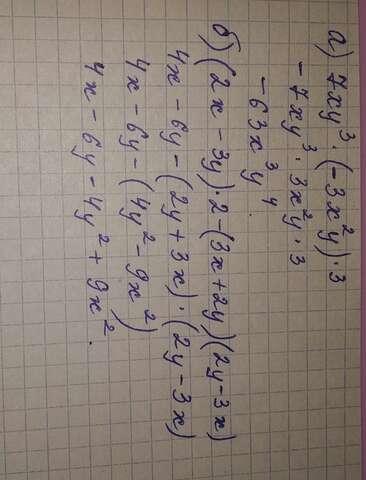 а) 7xy³ · (-3x²y) · 3
- 7xy³ · 3x²y · 3
- 63x³y⁴
б) (2x - 3y) · 2 - (3x + 2y)(2y - 3x)
4x - 6y - (2y + 3x) · (2y - 3x)
4x - 6y - (4y² - 9x²)
4x - 6y - 4y² + 9x².